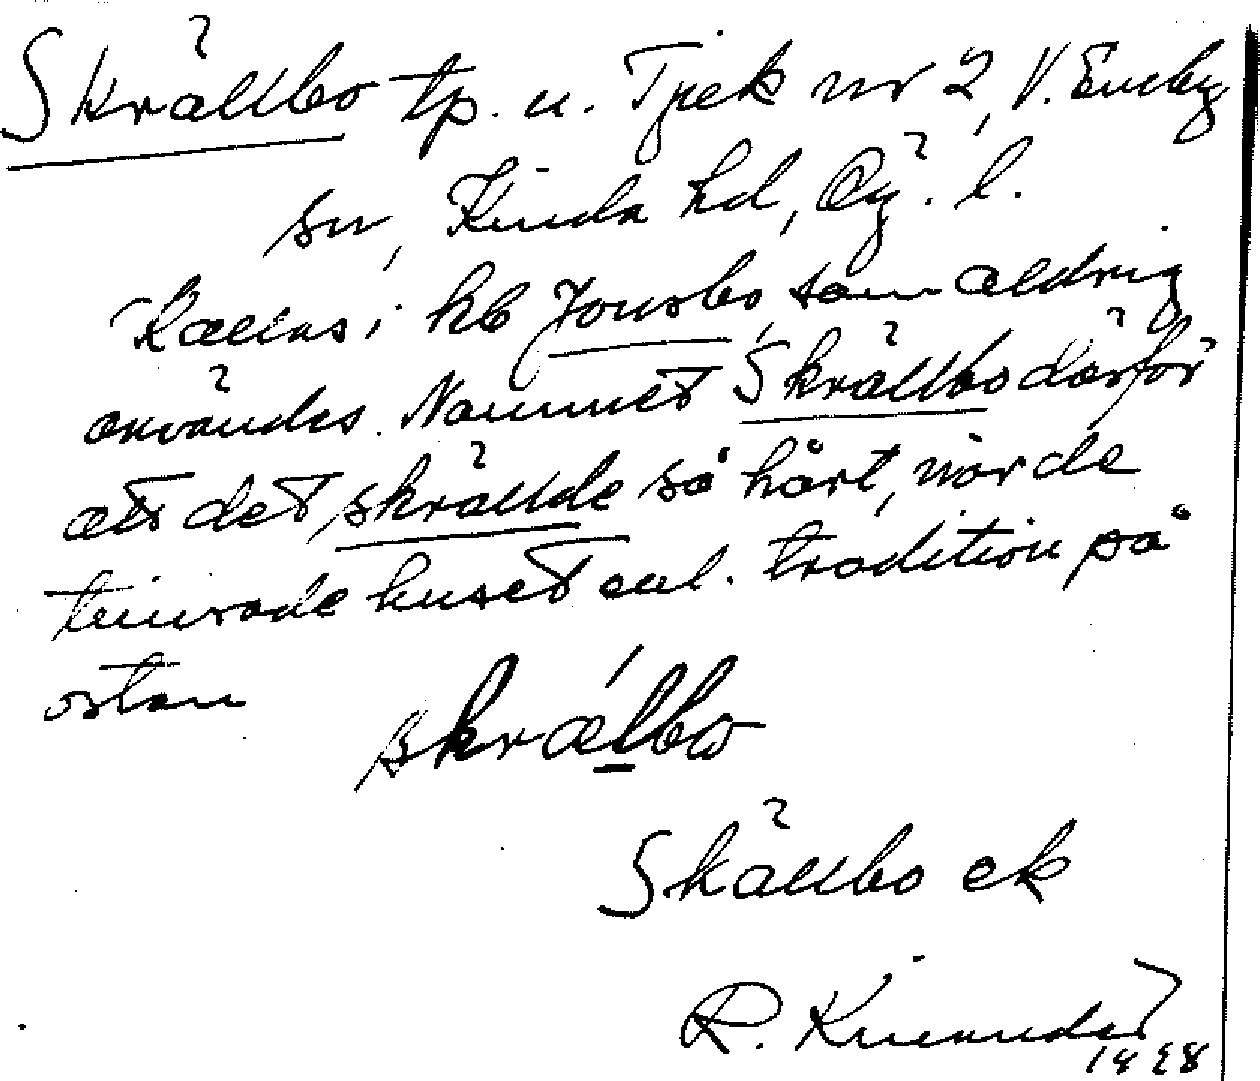 Skrällbo tp. u. Tjpek nr 2, V. Eneby
sn, Kinda hd, Ög. l.
Kallas i kb Jonsbo, som aldrig
användes. Namnet Skrällbo därför
att det skrällde så hårt, när de
timrade huset enl. tradition på
östan
skrælbω
Skällbo ek
R. Kinander